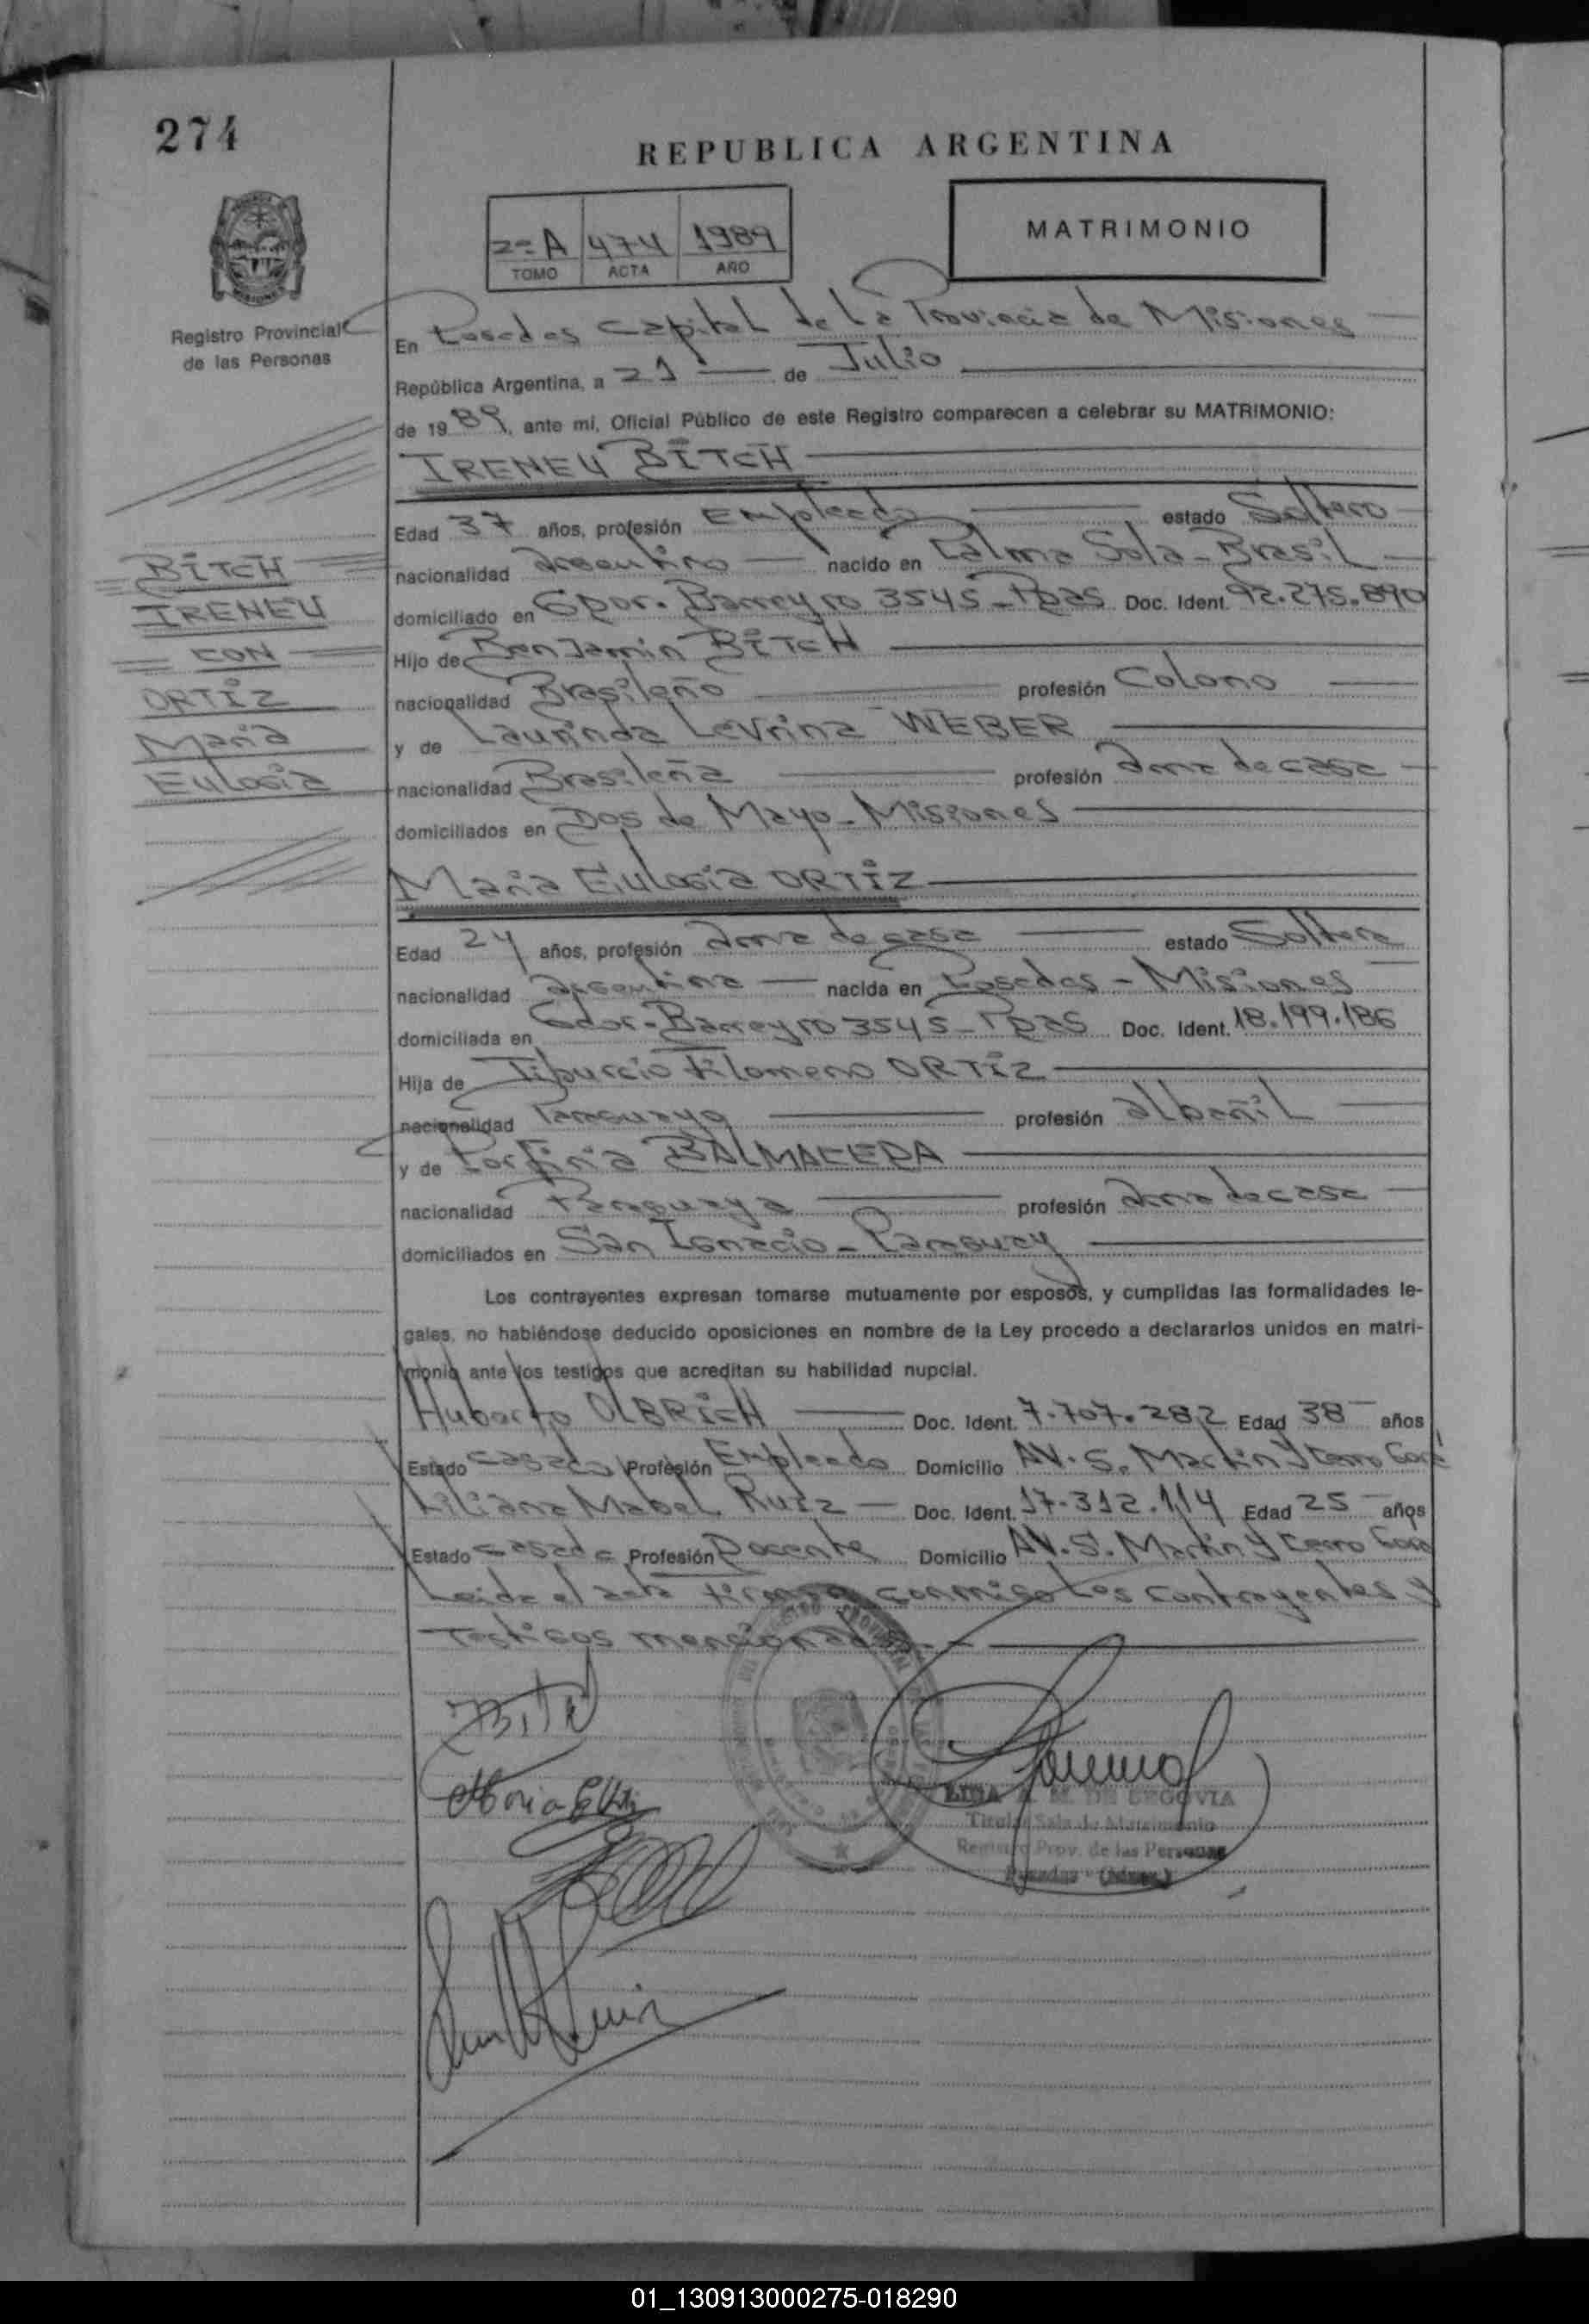 274
REPUBLICA ARGENTINA
2º A 474 1989
TOMO ACTA AÑO
MATRIMONIO
Registro Provincial
de las Personas
En Posadas Capital de la Provincia de Misiones
República Argentina, a 21 de Julio
de 1989, ante mi, Oficial Público de este Registro comparecen a celebrar su MATRIMONIO:
IRENEU BITCH
Edad 37 años, profesión Empleado estado Soltero
nacionalidad argentino nacido en Palma Sola - Brasil
domiciliado en Gdor. Barreyro 3545 - Pdas Doc. Ident. 92.275.890
Hijo de Benjamin BITCH
nacionalidad Brasileño profesión Colono
y de Laurinda Levrina WEBER
nacionalidad Brasileña profesión ama de casa
domiciliados en Dos de Mayo - Misiones
BITCH
IRENEU
CON
ORTIZ
Maria
Eulogia
Maria Eulogia ORTIZ
Edad 24 años, profesión ama de casa estado Soltera
nacionalidad argentina nacida en Posadas - Misiones
domiciliada en Gdor. Barreyro 3545 - Pdas Doc. Ident. 18.199.186
Hija de Tiburcio Filomeno ORTIZ
nacionalidad Paraguayo profesión albañil
y de Porfiria BALMACEDA
nacionalidad Paraguaya profesión ama de casa
domiciliados en San Ignacio - Paraguay
Los contrayentes expresan tomarse mutuamente por esposos, y cumplidas las formalidades le-
gales, no habiéndose deducido oposiciones en nombre de la Ley procedo a declararlos unidos en matri-
monio ante los testigos que acreditan su habilidad nupcial.
Huberto OLBRICH Doc. Ident. 7.707.282 Edad 38 años
Estado casado Profesión Empleado Domicilio AV. S. Martin y Cerro Corá
Liliana Mabel Ruiz Doc. Ident. 17.312.114 Edad 25 años
Estado casada Profesión Docente Domicilio AV. S. Martin y Cerro Corá
Leida el acta firman conmigo los contrayentes y
Testigos mencionados.
LIDIA A. M. DE SEGOVIA
Titular Sala de Matrimonio
Registro Prov. de las Personas
Posadas - (Mnes.)
01_130913000275-018290